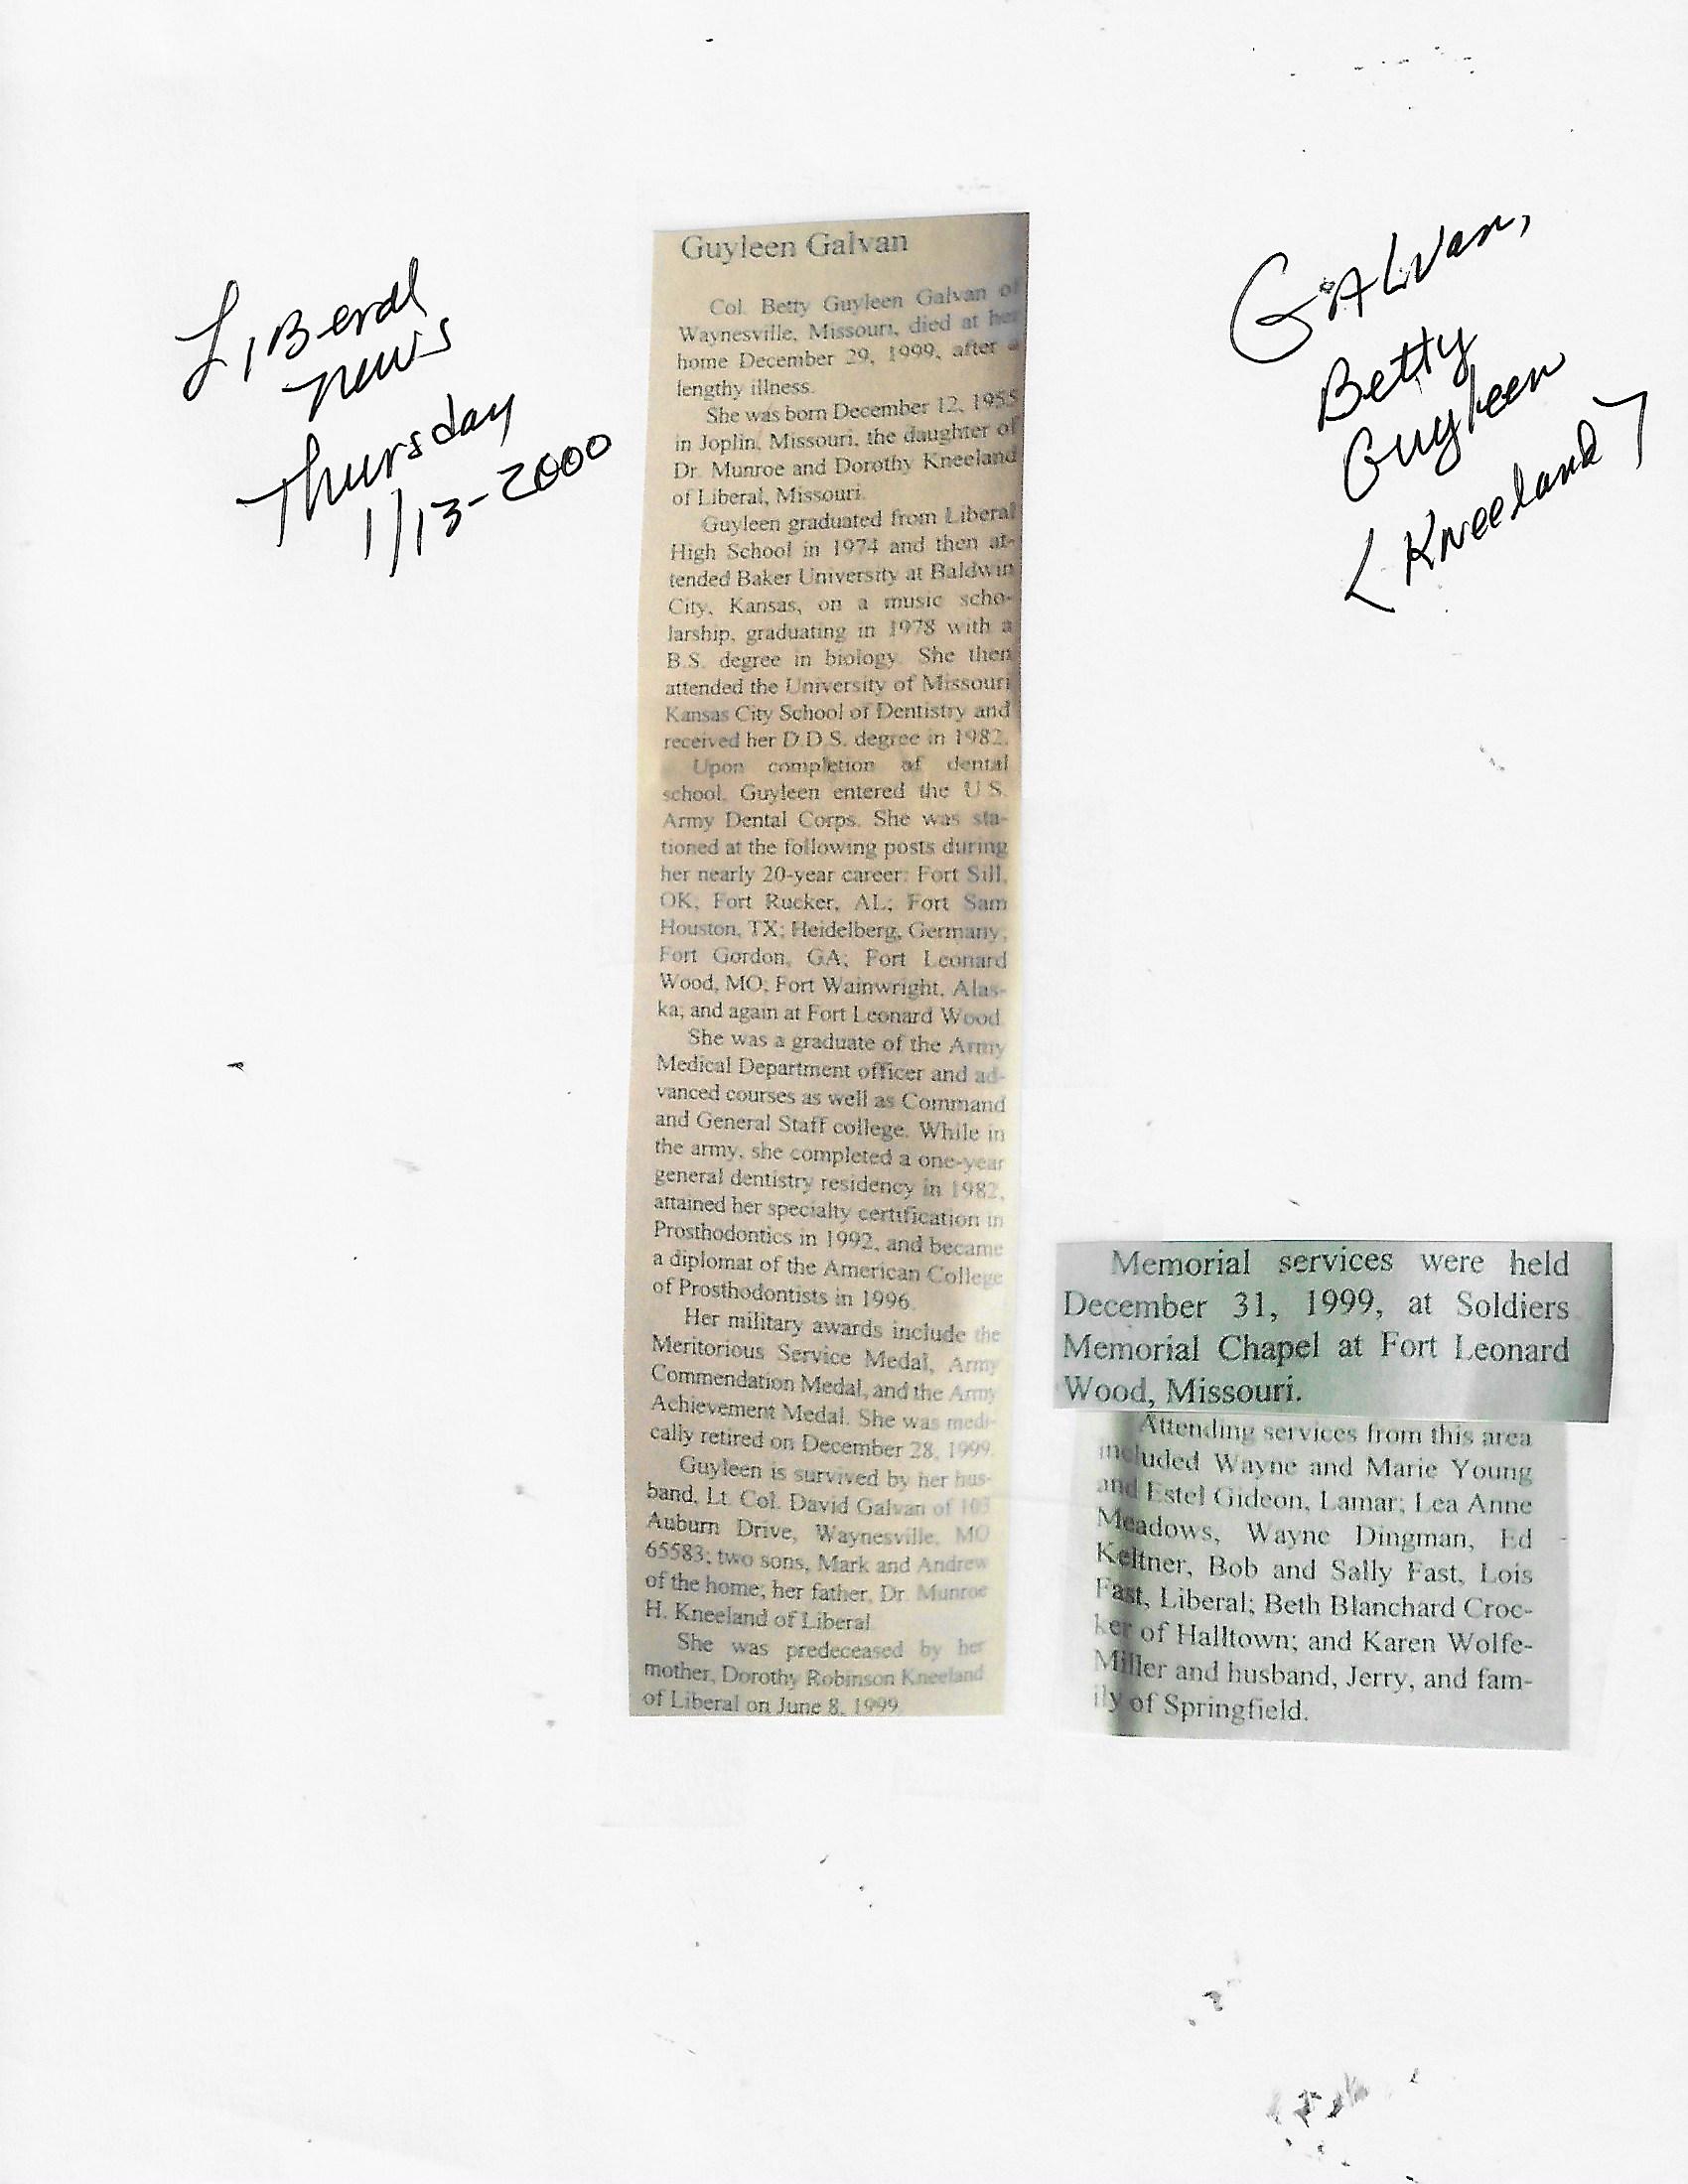 Liberal
news
Thursday
1/13-2000
Galvan,
Betty
Guyleen
<Kneeland>
Guyleen Galvan
Col. Betty Guyleen Galvan of
Waynesville, Missouri, died at her
home December 29, 1999, after a
lengthy illness.
She was born December 12, 1955
in Joplin, Missouri, the daughter of
Dr. Munroe and Dorothy Kneeland
of Liberal, Missouri.
Guyleen graduated from Liberal
High School in 1974 and then at-
tended Baker University at Baldwin
City, Kansas, on a music scho-
larship, graduating in 1978 with a
B.S. degree in biology. She then
attended the University of Missouri
Kansas City School of Dentistry and
received her D.D.S. degree in 1982.
Upon completion of dental
school, Guyleen entered the U.S.
Army Dental Corps. She was sta-
tioned at the following posts during
her nearly 20-year career: Fort Sill,
OK; Fort Rucker, AL; Fort Sam
Houston, TX; Heidelberg, Germany;
Fort Gordon, GA; Fort Leonard
Wood, MO; Fort Wainwright, Alas-
ka; and again at Fort Leonard Wood.
She was a graduate of the Army
Medical Department officer and ad-
vanced courses as well as Command
and General Staff college. While in
the army, she completed a one-year
general dentistry residency in 1982,
attained her specialty certification in
Prosthodontics in 1992, and became
a diplomat of the American College
of Prosthodontists in 1996.
Her military awards include the
Meritorious Service Medal, Army
Commendation Medal, and the Army
Achievement Medal. She was medi-
cally retired on December 28, 1999.
Guyleen is survived by her hus-
band, Lt. Col. David Galvan of 103
Auburn Drive, Waynesville, MO
65583; two sons, Mark and Andrew
of the home; her father, Dr. Munroe
H. Kneeland of Liberal.
She was predeceased by her
mother, Dorothy Robinson Kneeland
of Liberal on June 8, 1999.
Memorial services were held
December 31, 1999, at Soldiers
Memorial Chapel at Fort Leonard
Wood, Missouri.
Attending services from this area
included Wayne and Marie Young
and Estel Gideon, Lamar; Lea Anne
Meadows, Wayne Dingman, Ed
Keltner, Bob and Sally Fast, Lois
Fast, Liberal; Beth Blanchard Croc-
ker of Halltown; and Karen Wolfe-
Miller and husband, Jerry, and fam-
ily of Springfield.